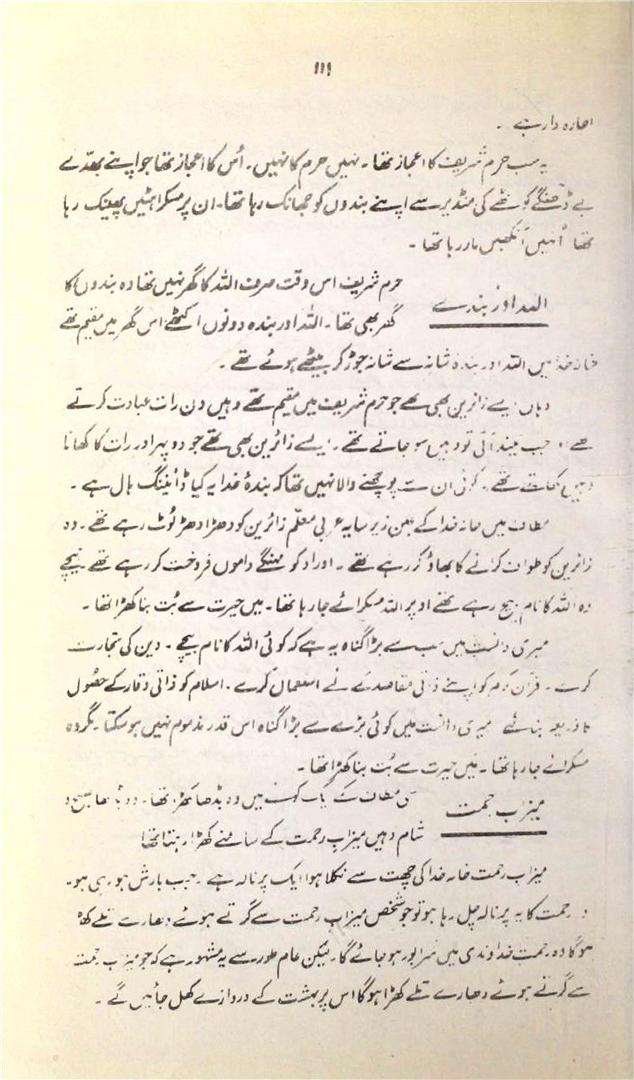 ۱۱۱
اجارہ دار ہے ۔
یہ سب حرم شریف کا اعجاز تھا ۔ نہیں حرم کا نہیں ۔ اُس کا اعجاز تھا جو اپنے بھدّے
بے ڈھنگے کوٹھے کی منڈیر سے اپنے بندوں کو جھانک رہا تھا ۔ ان پر مسکراہٹیں پھینک رہا
تھا اُنہیں آنکھیں مار رہا تھا ۔
اللہ اور بندے
حرم شریف اس وقت صرف اللہ کا گھر نہیں تھا وہ بندوں کا
گھر بھی تھا ۔ اللہ اور بندہ دونوں اکٹھے اس گھر میں مقیم تھے
خانہ خدا میں اللہ اور بندہ شانہ سے شانہ جوڑ کر بیٹھے ہوئے تھے ۔
وہاں ایسے زائرین بھی تھے جو حرم شریف میں مقیم تھے وہیں دن رات عبادت کرتے
تھے ۔ جب نیند آتی تو وہیں سو جاتے تھے ۔ ایسے زائرین بھی تھے جو دوپہر اور رات کا کھانا
وہیں کھاتے تھے ۔ کوئی ان سے پوچھنے والا نہیں تھا کہ بندۂ خدا یہ کیا ڈائیننگ ہال ہے ۔
مطاف میں خانہ خدا کے عین زیر سایہ عربی معلّم زائرین کو دھڑا دھڑ لُوٹ رہے تھے ۔ وہ
زائرین کو طواف کرانے کا بھاؤ کر رہے تھے ۔ اوراد کو مہنگے داموں فروخت کر رہے تھے نیچے
وہ اللہ کا نام بیچ رہے تھے اوپر اللہ مسکرائے جا رہا تھا ۔ میں حیرت سے بُت بنا کھڑا تھا ۔
میری دانست میں سب سے بڑا گناہ یہ ہے کہ کوئی اللہ کا نام بیچے ۔ دین کی تجارت
کرے ۔ قرآن کریم کو اپنے ذاتی مقاصد کے لئے استعمال کرے ۔ اسلام کو ذاتی وقار کے حصُول
کا ذریعہ بنائے میری دانست میں کوئی بڑے سے بڑا گناہ اس قدر مذموم نہیں ہو سکتا ۔ مگر وہ
مسکرائے جا رہا تھا ۔ میں حیرت سے بُت بنا کھڑا تھا ۔
میزاب رحمت
مطاف کے ایک میں وہ بڈھا کھڑا تھا ۔ وہ بڈھا صبح و
شام وہیں میزاب رحمت کے سامنے کھڑا رہتا تھا
میزاب رحمت خانہ خدا کی چھت سے نکلا ہوا ایک پرنالہ ہے ۔ جب بارش ہو رہی ہو ۔
رحمت کا یہ پرنالہ چل رہا ہو تو جو شخص میزاب رحمت سے گرتے ہوئے دھارے تلے کھڑا
ہوگا وہ رحمت خداوندی میں شرابور ہو جائے گا ۔ لیکن عام طور سے یہ مشہور ہے کہ جو میزاب رحمت
سے گرتے ہوئے دھارے تلے کھڑا ہوگا اس پر بہشت کے دروازے کھل جائیں گے ۔